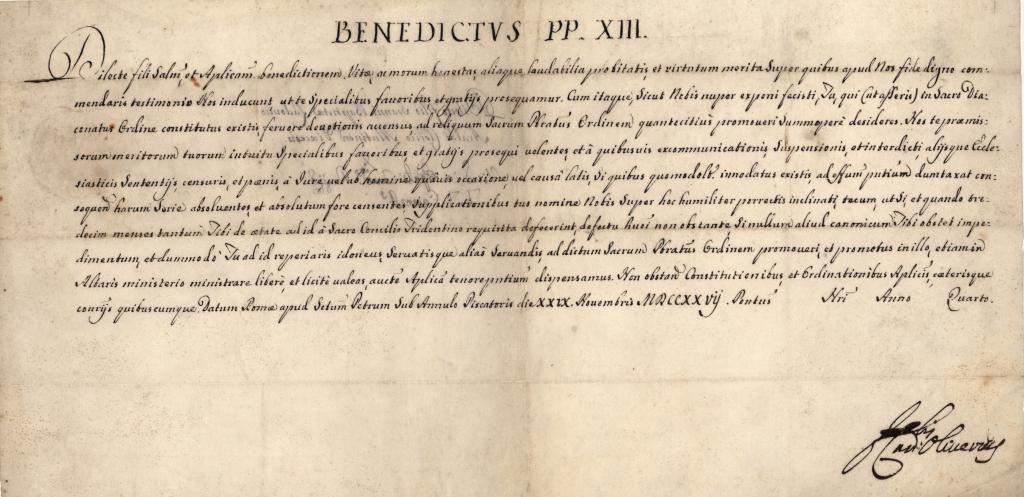 BENEDICTVS PP. XIII.
Dilecte fili Salm, et Aplicam benedictionem. Vitæ, ac morum honestas, aliaque laudabilia probitatis, et virtutum merita, super quibus apud Nos fide digno com-
mendaris testimonio Nos inducunt, ut te specialibus favoribus, et gratijs prosequamur. Cum itaque, sicut Nobis nuper exponi fecisti, Tu, qui (ut asseris) in Sacro Dia-
conatus Ordine constitutus existis, fervore devotionis accensus ad reliquum Sacrum Pbratus Ordinem quantocitius promoveri summopere desideres. Nos te præmis-
sorum meritorum tuorum intuitu specialibus favoribus, et gratijs prosequi volentes, et à quibusvis excommunicationis, suspensionis, et interdicti, alijsque Eccle-
siasticis Sententijs, censuris, et pœnis, à Jure, vel ab homine quavis occasione, vel causa latis, si quibus quomodolt. innodatus existis, ad effum pntium dumtaxat con-
sequen harum serie absolventes, et absolutum fore censentes, supplicationibus tuo nomine Nobis super hoc humiliter porrectis inclinati, tecum, ut si, et quando tre-
decim menses tantum Tibi de ætate ad id à Sacro Concilio Tridentino requisita defecerint, defectu hmoi non obstante, si nullum aliud canonicum Tibi obstet impe-
dimentum, et dummodo Tu ad id reperiaris idoneus, Servatisque alias servandis, ad dictum Sacrum Pbratus Ordinem promoveri, et promotus in illo, etiam in
Altaris ministerio ministrare libere, et licite valeas, aucte Aplica tenore pntium dispensamus. Non obstan Constitutionibus, et Ordinationibus Aplicis, cæterisque
contrijs quibuscumque. Datum Romæ apud Sctum Petrum sub Annulo Piscatoris die XXIX. Novembris MDCCXXVIJ. Pontus Nri Anno Quarto.